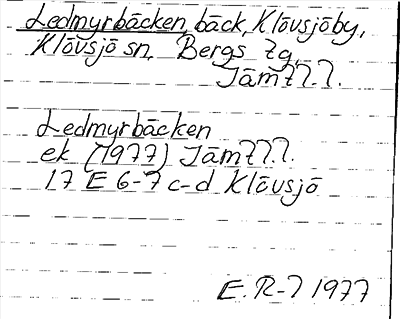 Ledmyrbäcken, bäck, Klövsjöby,
Klövsjö sn, Bergs tg
Jämtl.l.
Ledmyrbäcken
ek (1977) Jämtl.l.
17 E 6-7 c-d Klövsjö
E. R-l 1977